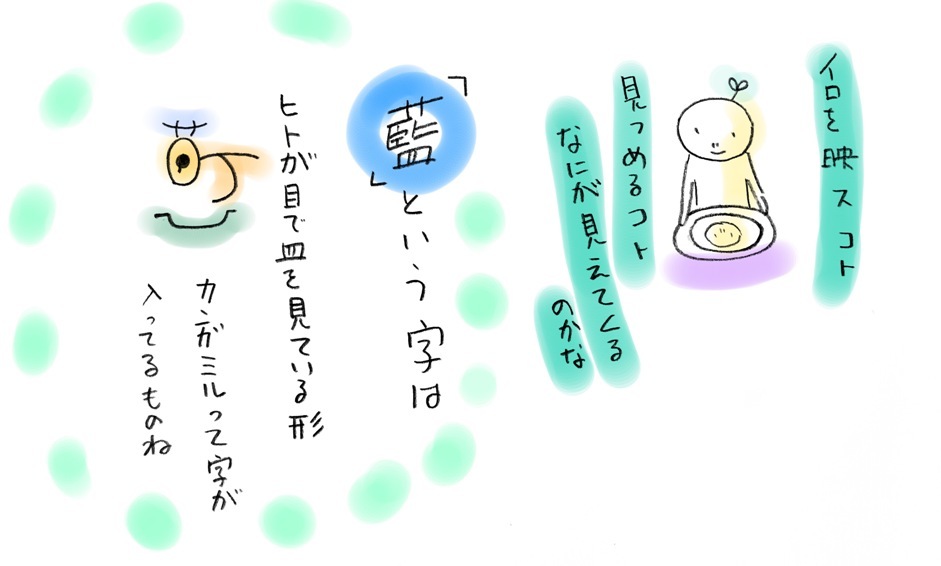 イロを映スコト
見つめるコト
なにが見えてくる
のかな
「藍」という字は
ヒトが目で皿を見ている形
カンガミルって字が
入ってるものね